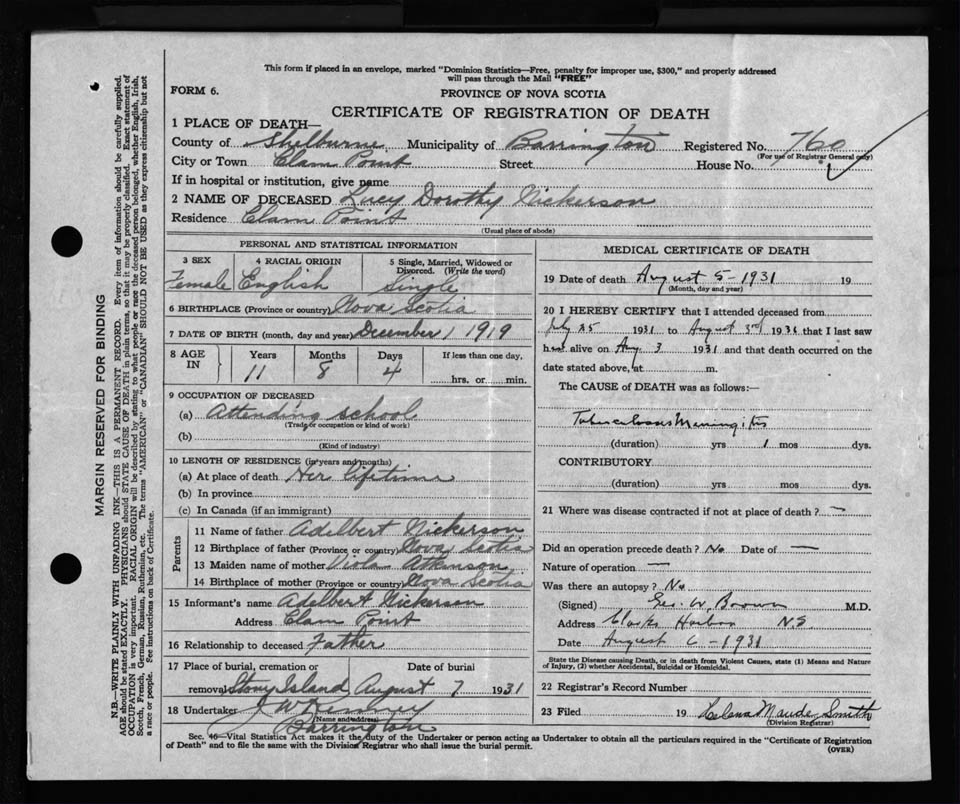 This form if placed in an envelope, marked "Dominion Statistics—Free, penalty for improper use, $300," and properly addressed
will pass through the Mail "FREE"
FORM 6.
PROVINCE OF NOVA SCOTIA
CERTIFICATE OF REGISTRATION OF DEATH
1 PLACE OF DEATH—
County of Shelburne Municipality of Barrington Registered No. 760
(For use of Registrar General only)
City or Town Clam Point Street House No.
If in hospital or institution, give name
2 NAME OF DECEASED Lucy Dorothy Nickerson
Residence Clam Point
(Usual place of abode)
PERSONAL AND STATISTICAL INFORMATION
3 SEX 4 RACIAL ORIGIN 5 Single, Married, Widowed or Divorced. (Write the word)
Female English Single
6 BIRTHPLACE (Province or country) Nova Scotia
7 DATE OF BIRTH (month, day and year) December 1 1919
8 AGE IN Years Months Days If less than one day,
11 8 4 hrs. or min.
9 OCCUPATION OF DECEASED
(a) Attending school
(Trade or occupation or kind of work)
(b)
(Kind of industry)
10 LENGTH OF RESIDENCE (in years and months)
(a) At place of death Her lifetime
(b) In province
(c) In Canada (if an immigrant)
Parents
11 Name of father Adelbert Nickerson
12 Birthplace of father (Province or country) Nova Scotia
13 Maiden name of mother Viola Atkinson
14 Birthplace of mother (Province or country) Nova Scotia
15 Informant's name Adelbert Nickerson
Address Clam Point
16 Relationship to deceased Father
17 Place of burial, cremation or Date of burial
removal Stony Island August 7 1931
18 Undertaker J W
(Name and address)
Barrington
MEDICAL CERTIFICATE OF DEATH
19 Date of death August 5-1931 19
(Month, day and year)
20 I HEREBY CERTIFY that I attended deceased from
July 25 1931 to August 3rd 1931 that I last saw
her alive on Aug 3 1931 and that death occurred on the
date stated above, at m.
The CAUSE of DEATH was as follows:
Tuberculous Meningitis
(duration) yrs 1 mos dys.
CONTRIBUTORY
(duration) yrs mos dys.
21 Where was disease contracted if not at place of death? —
Did an operation precede death? No Date of —
Nature of operation —
Was there an autopsy? No
(Signed) Geo. W. Brown M.D.
Address Clarks Harbor NS
Date August 6-1931
State the Disease causing Death, or in death from Violent Causes, state (1) Means and Nature
of Injury, (2) whether Accidental, Suicidal or Homicidal.
22 Registrar's Record Number
23 Filed 19 Helena Maude Smith
(Division Registrar)
Sec. 46—Vital Statistics Act makes it the duty of the Undertaker or person acting as Undertaker to obtain all the particulars required in the "Certificate of Registration
of Death" and to file the same with the Division Registrar who shall issue the burial permit.
(OVER)
MARGIN RESERVED FOR BINDING
N.B.—WRITE PLAINLY WITH UNFADING INK—THIS IS A PERMANENT RECORD. Every item of information should be carefully supplied.
AGE should be stated EXACTLY. PHYSICIANS should STATE CAUSE OF DEATH in plain terms, so that it may be properly classified. Exact statement of
OCCUPATION is very important. RACIAL ORIGIN will be described by stating to what people or race the deceased person belonged, whether English, Irish,
Scotch, French, German, Russian, Ruthenian, etc. The terms "AMERICAN" or "CANADIAN" SHOULD NOT BE USED as they express citizenship but not
a race or people. See instructions on back of Certificate.